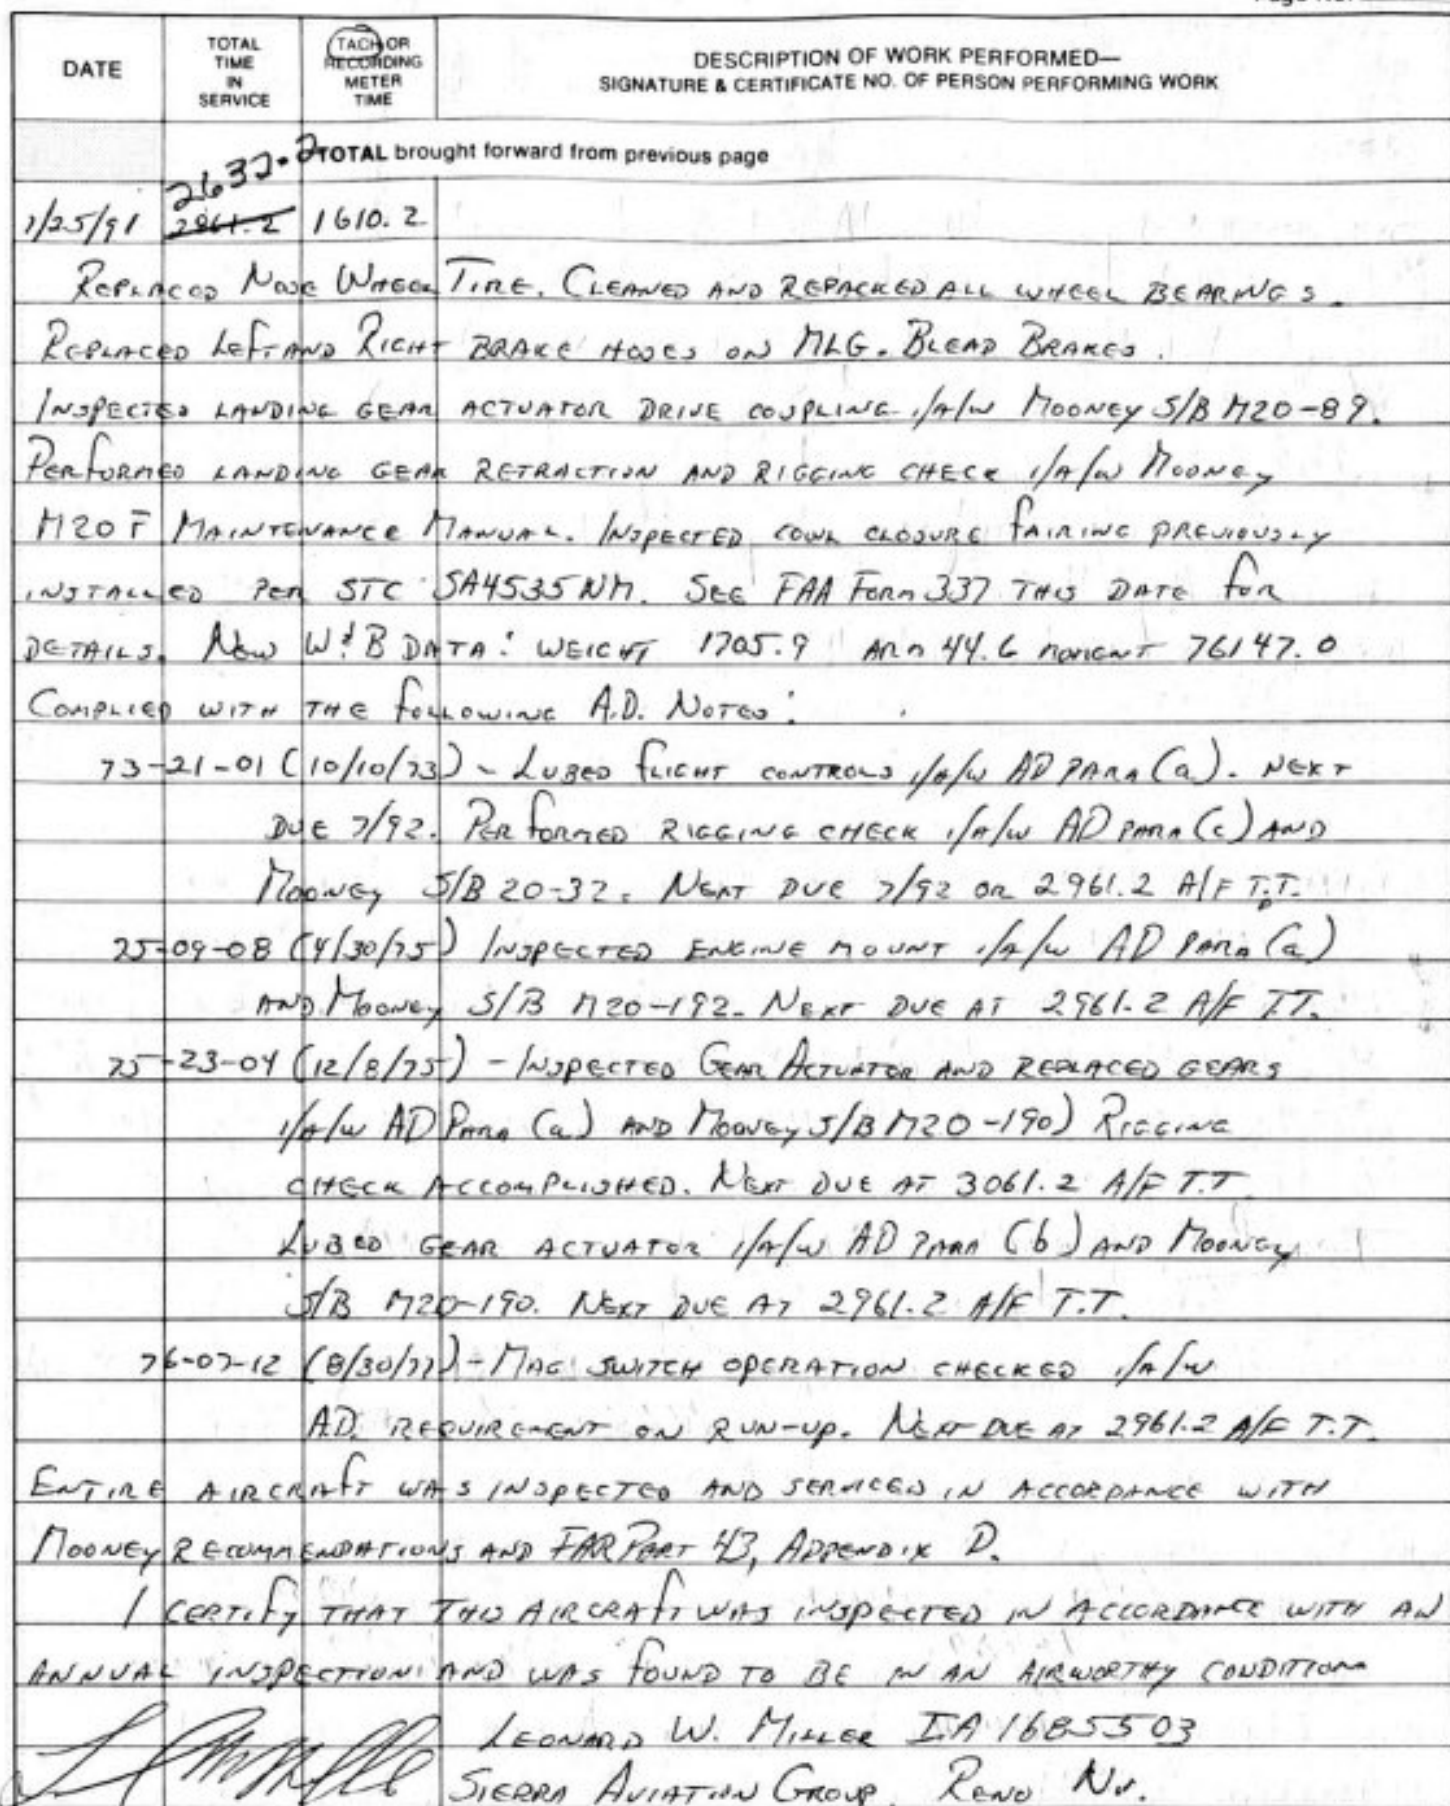 DATE
TOTAL TIME IN SERVICE
TACH OR RECORDING METER TIME
DESCRIPTION OF WORK PERFORMED—
SIGNATURE & CERTIFICATE NO. OF PERSON PERFORMING WORK
TOTAL brought forward from previous page
2632.2
7/25/91 2861.2 1610.2
REPLACED NOSE WHEEL TIRE. CLEANED AND REPACKED ALL WHEEL BEARINGS.
REPLACED LEFT AND RIGHT BRAKE HOSES ON MLG. BLEAD BRAKES.
INSPECTED LANDING GEAR ACTUATOR DRIVE COUPLING I/A/W MOONEY S/B M20-89.
PERFORMED LANDING GEAR RETRACTION AND RIGGING CHECK I/A/W MOONEY
M20F MAINTENANCE MANUAL. INSPECTED COWL CLOSURE FAIRING PREVIOUSLY
INSTALLED PER STC SA4535NM. SEE FAA FORM 337 THIS DATE FOR
DETAILS. NEW W&B DATA: WEIGHT 1705.9 ARM 44.6 MOMENT 76147.0
COMPLIED WITH THE FOLLOWING A.D. NOTES:
73-21-01 (10/10/73) - LUBED FLIGHT CONTROLS I/A/W AD PARA (a). NEXT
DUE 7/92. PERFORMED RIGGING CHECK I/A/W AD PARA (c) AND
MOONEY S/B 20-32. NEXT DUE 7/92 OR 2961.2 A/F T.T.
75-09-08 (4/30/75) INSPECTED ENGINE MOUNT I/A/W AD PARA (a)
AND MOONEY S/B M20-192. NEXT DUE AT 2961.2 A/F T.T.
75-23-04 (12/8/75) - INSPECTED GEAR ACTUATOR AND REPLACED GEARS
I/A/W AD PARA (a) AND MOONEY S/B M20-190) RIGGING
CHECK ACCOMPLISHED. NEXT DUE AT 3061.2 A/F T.T
LUBED GEAR ACTUATOR I/A/W AD PARA (b) AND MOONEY
S/B M20-190. NEXT DUE AT 2961.2 A/F T.T.
76-07-12 (8/30/77) - MAG SWITCH OPERATION CHECKED I/A/W
A.D. REQUIREMENT ON RUN-UP. NEXT DUE AT 2961.2 A/F T.T.
ENTIRE AIRCRAFT WAS INSPECTED AND SERVICED IN ACCORDANCE WITH
MOONEY RECOMMENDATIONS AND FAR PART 43, APPENDIX D.
I CERTIFY THAT THIS AIRCRAFT WAS INSPECTED IN ACCORDANCE WITH AN
ANNUAL INSPECTION AND WAS FOUND TO BE IN AN AIRWORTHY CONDITION
LEONARD W. MILLER IA 1685503
SIERRA AVIATION GROUP, RENO NV.